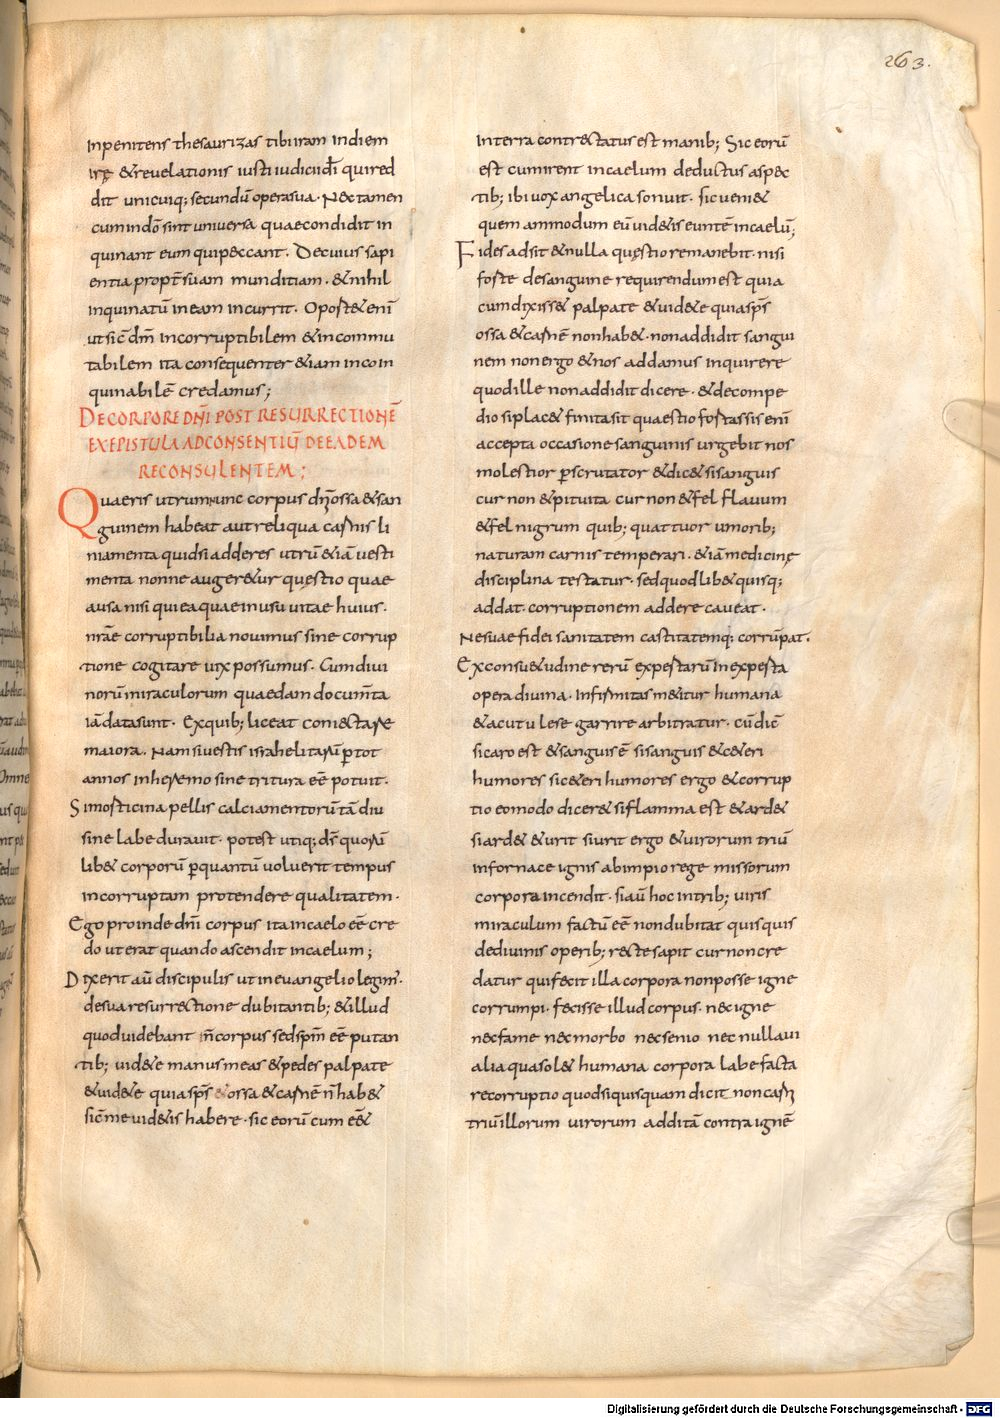 263.
inpenitens thesaurizas tibi iram indiem
irę &reuelationis iusti iudicii dī qui red
dit unicuiq; secundū opera sua. Nec tamen
cum in dō sint uniuersa quae condidit in
quinant eum qui peccant. De cuius sapi
entia propt̄ suam munditiam. &nihil
inquinatū in eam incurrit. Oport& enī
ut sic̄ dm̄ incorruptibilem &incommu
tabilem ita consequenter &iam incoin
quinabilē credamus;
DE CORPORE DNĪ POST RESURRECTIONĒ
EX EPISTULA AD CONSENTIŪ DE EADEM
RE CONSULENTEM;
Quaeris utrum nunc corpus dnī ossa &san
guinem habeat aut reliqua carnis li
niamenta quid si adderes utrū &iā uesti
menta nonne auger&ur quęstio quae
ausa nisi quiea quae in usu uitae huius.
nr̄ae corruptibilia nouimus sine corrup
tione cogitare uix possumus. Cum diui
norū miraculorum quaedam documēta
iā data sunt. Ex quib; liceat coniectare
maiora. Nam si uestis israhelitarū p̄ tot
annos in heremo sine tritura eē potuit.
Si morticina pellis calciamentorū tā diu
sine labe durauit. potest utiq; d̄s quorū
lib& corporū p̄quantū uoluerit tempus
incorruptam protendere qualitatem.
Ego proinde dnī corpus ita in caelo eē cre
do ut erat quando ascendit in caelum;
Dixerit aū discipulis ut in euangelio legim̄.
de sua resurrectione dubitantib; &illud
quod uidebant n̄ corpus sed spm̄ eē putan
tib; uid&e manus meas &pedes palpate
&uid&e quia sps̄ ossa &carnē n̄ hab&
sic̄ me uid&is habere. sic eorū cum ess&
in terra contr&tatus est manib; Sic eorū
est cum irent in caelum deductus aspec
tib; ibi uox angelica sonuit. sic ueni&
quem ammodum eū uid&is euntē in caelū;
Fides adsit &nulla quęstio remanebit. nisi
forte de sanguine requirendum est quia
cum dixiss& palpate &uid&e quia sps̄
ossa &carnē non hab&. non addidit sangui
nem non ergo &nos addamus inquirere
quod ille non addidit dicere. &de compe
dio si plac& finita sit quaestio fortassis enī
accepta occasione sanguinis urgebit nos
molestior p̄scrutator &dic& si sanguis
cur non &pituita cur non &fel flauum
&fel nigrum quib; quattuor umorib;
naturam carnis temperari. &iā medicinę
disciplina testatur. sed quod lib& quisq;
addat. corruptionem addere caueat.
Ne suae fidei sanitatem castitatemq; corrūpat.
Ex consu&udine rerū expertarū inexperta
opera diuina. Infirmitas m&itur humana
&acutule se garrire arbitratur. cū dic̄
si caro est &sanguis ē si sanguis &c&eri
humores si c&eri humores ergo &corrup
tio eo modo dicer& si flamma est &ard&
si ard& &urit si urit ergo &uirorum triū
in fornace ignis ab impio rege missorum
corpora incendit. si aū hoc in trib; uiris
miraculum factū eē non dubitat quisquis
de diuinis operib; recte sapit cur non cre
datur qui fecit illa corpora non posse igne
corrumpi. fecisse illud corpus. nec igne
nec fame nec morbo nec senio nec nulla ui
alia qua sol& humana corpora labefacta
re corruptio quod si quisquam dicit non carni
triū illorum uirorum additā contra ignē
Digitalisierung gefördert durch die Deutsche Forschungsgemeinschaft - DFG